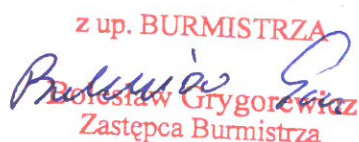 z up. BURMISTRZA
Bolesław Grygorewicz
Zastępca Burmistrza